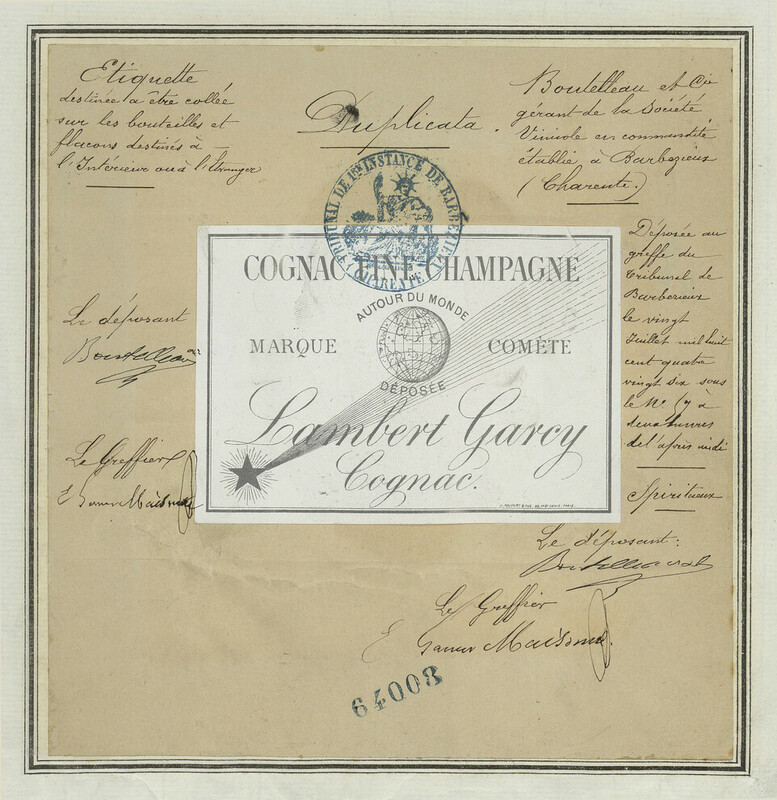 Etiquette
destinée à être collée
sur les bouteilles et
flacons destinés à
l'Intérieur ou à l'Etranger
Duplicata.
Boutelleau et Cie
gérant de la Société
Vinicole en commandite
établie à Barbezieux
(Charente.)
TRIBUNAL DE 1re INSTANCE DE BARBEZIEUX
(CHARENTE)
COGNAC FINE CHAMPAGNE
AUTOUR DU MONDE
MARQUE COMÈTE
DÉPOSÉE
Lambert Garcy
Cognac.
Déposée au
greffe du
Tribunal de
Barbezieux
le vingt
Juillet mil huit
cent quatre
vingt six sous
le No. 57 à
deux heures
de l'après midi
Spiritueux
Le déposant
Boutelleau
Le Greffier
Le déposant:
Boutelleau
Le Greffier
64008